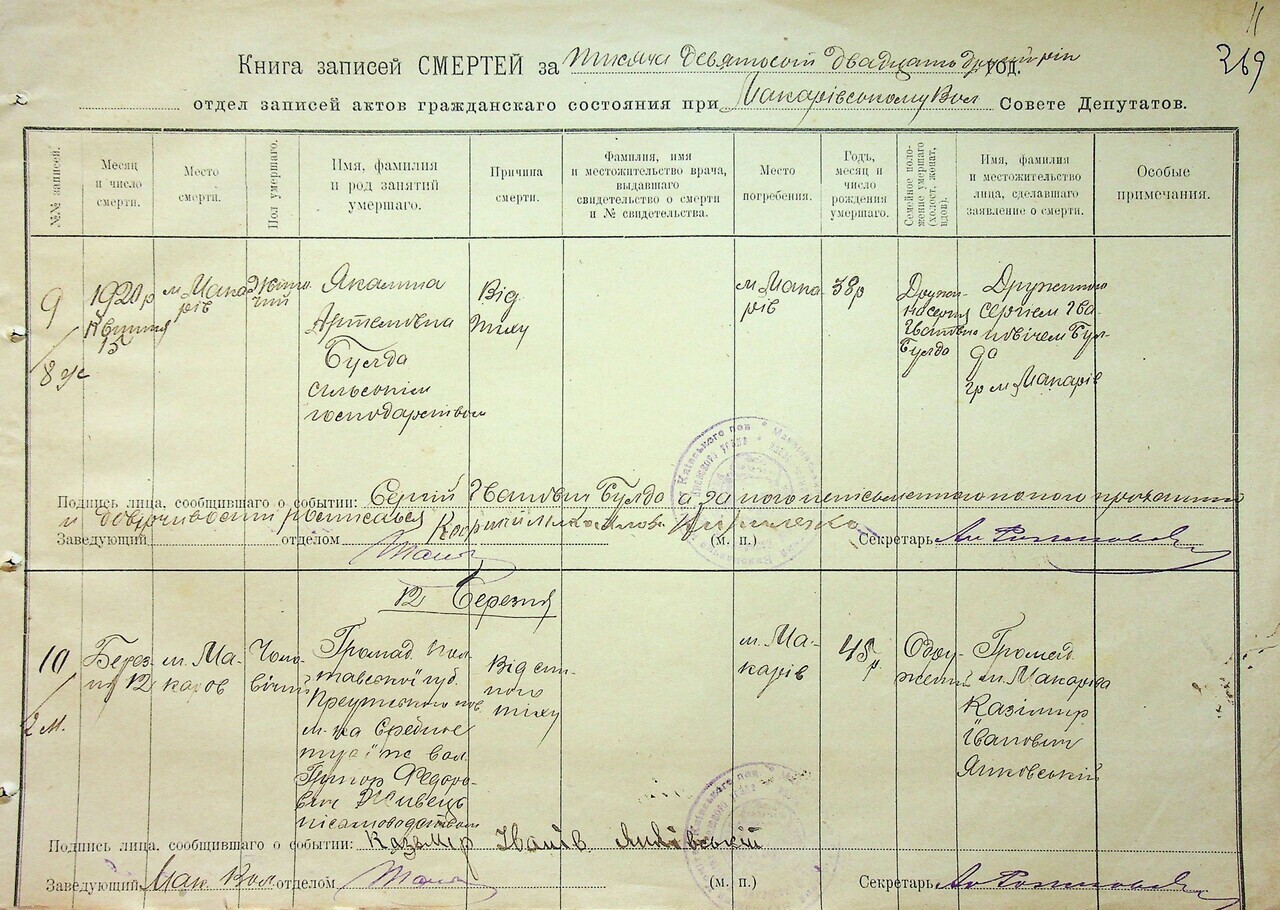 11
269
Книга записей СМЕРТЕЙ за тисяча девятьсот двадцать другий рік год.
отдел записей актов гражданскаго состояния при Макарівському Вол Совете Депутатов.
№№ записей.
Месяц и число смерти.
Место смерти.
Пол умершаго.
Имя, фамилия и род занятий умершаго.
Причина смерти.
Фамилия, имя и местожительство врача, выдавшаго свидетельство о смерти и № свидетельства.
Место погребения.
Годъ, месяц и число рождения умершаго.
Семейное положение умершаго (холост, женат, вдов).
Имя, фамилия и местожительство лица, сделавшаго заявление о смерти.
Особые примечания.
9
8 ж
1920 р
Квітня
15
м Мака
рів
Жіно
чий
Якилина
Артемовна
Булда
сільським
господарством
Від
тиху
м Мака
рів
38 р
Дружи
на сергія
Івановича
Булдо
Дружиною
сергієм Іва
новічем Бул-
да
гр м Макарів
Подпись лица, сообщившаго о событии: Сергій Іванович Булдо а за його неписьменного по його проханню
и довірчивости росписався
Заведующий отделом (м. п.) Секретарь
12 Березня
10
2 м.
Берез-
ня 12
м. Ма-
каров
Чоло-
вічий
Громад. Пол-
тавської губ.
м-ка Средное
вол.
Федоро-
вич Живець
Від сип-
ного
тиху
м. Ма-
карів
45 р
Одру-
жений
Громад.
м. Макарова
Казімир
Іванович
Янковський
Подпись лица, сообщившаго о событии: Казьмір Іванів Янківській
Заведующий Мак. Вол отделом (м. п.) Секретарь